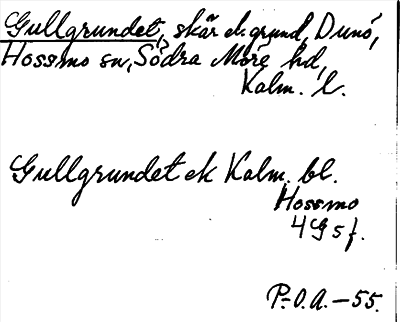 Gullgrundet, skär el. grund, Dunö,
Hossmo sn, Södra Möre hd,
Kalm. l.
Gullgrundet ek Kalm. bl.
Hossmo
4G5f.
P-O.A.-55.